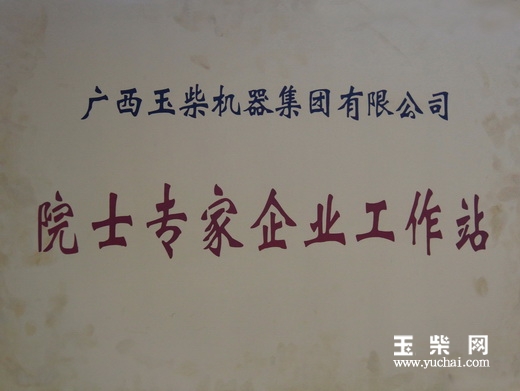 广西玉柴机器集团有限公司
院士专家企业工作站
玉柴网
www.yuchai.com